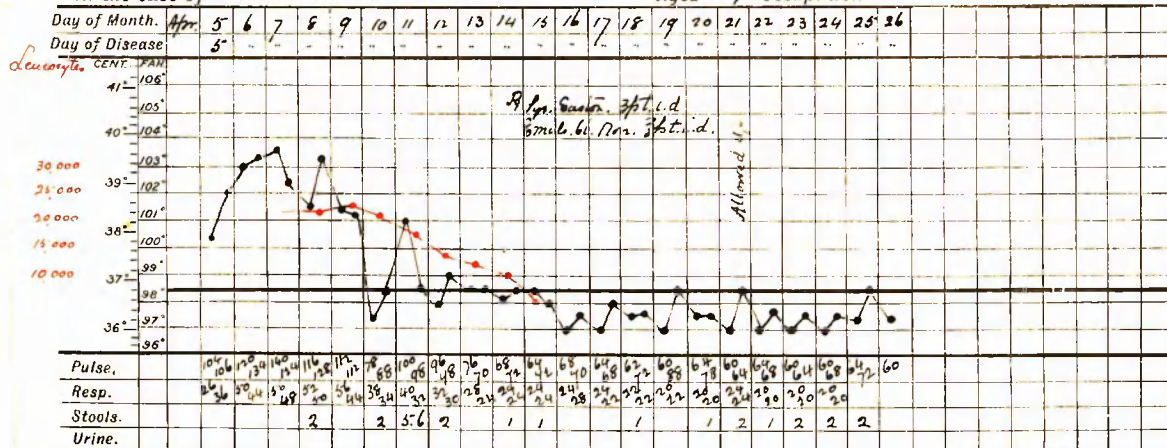 Day of Month. Apr. 5 6 7 8 9 10 11 12 13 14 15 16 17 18 19 20 21 22 23 24 25 26
Day of Disease 5 " " " " " " " " " " " " " " " " " " " " "
Leucocytes CENT. FAH
41° 106°
105°
40° 104°
30,000 103°
39° 102°
25,000
20,000 101°
38° 100°
15,000
10,000 99°
37° 98°
97°
36° 96°
℞ Syr. Easton. t.i.d
t.i.d.
Allowed
Pulse. 104 106 120 134 140 134 116 128 112 112 78 88 100 98 96 48 76 70 68 72 64 72 68 70 64 68 62 72 60 88 64 78 60 64 64 68 60 64 60 68 64 72 60
Resp. 26 36 50 44 50 48 52 50 56 44 38 34 40 32 32 30 28 24 24 24 24 24 24 28 24 22 22 22 20 22 20 20 24 24 20 20 20 20 20 20
Stools. 2 2 5.6 2 1 1 1 1 2 1 2 2 2
Urine.